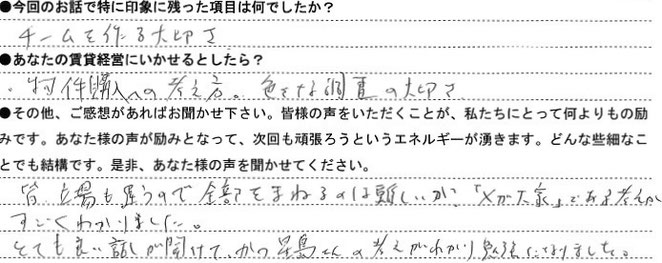 ●今回のお話で特に印象に残った項目は何でしたか？
チームを作る大切さ
●あなたの賃貸経営にいかせるとしたら？
・物件購入への考え方。色々な調査の大切さ
●その他、ご感想があればお聞かせ下さい。皆様の声をいただくことが、私たちにとって何よりもの励
みです。あなた様の声が励みとなって、次回も頑張ろうというエネルギーが湧きます。どんな些細なこ
とでも結構です。是非、あなた様の声を聞かせてください。
皆 立場も違うので全部をまねるのは難しいが、「Xが大家」である考えが
すごくわかりました。
とても良い話しが聞けて、かつ 星島さんの考えがわかり勉強になりました。